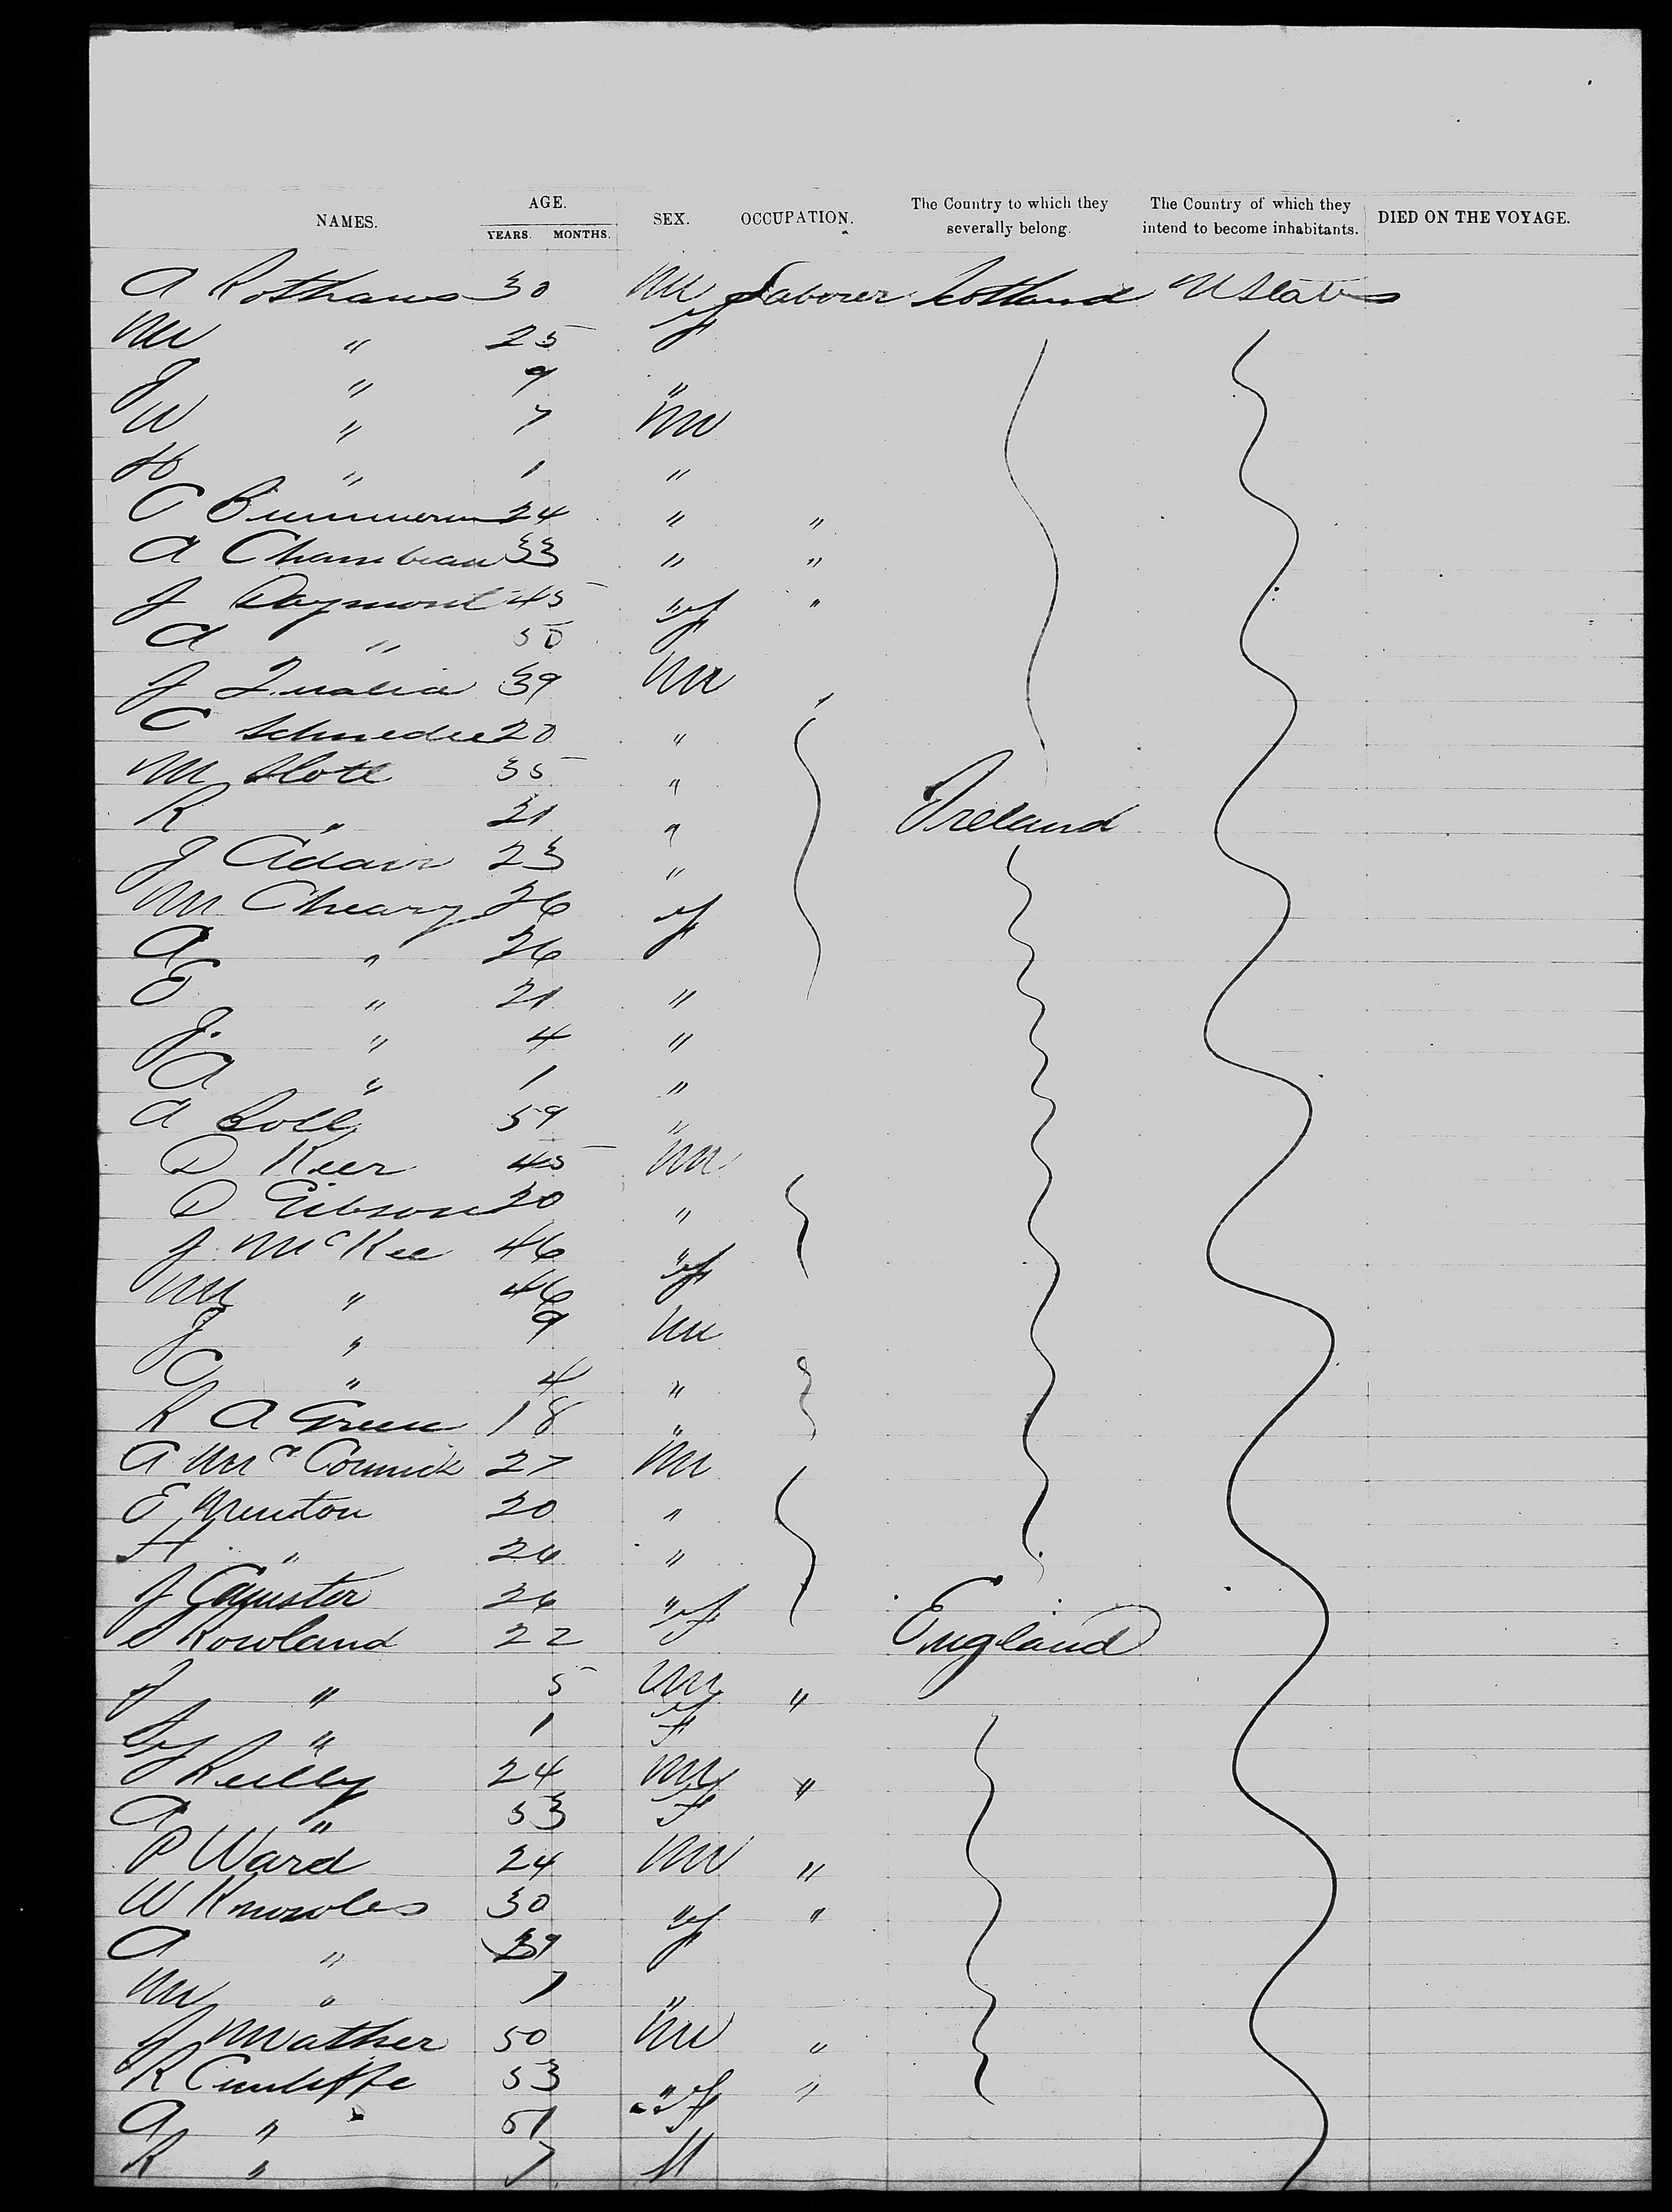 NAMES. AGE. YEARS. MONTHS. SEX. OCCUPATION. The Country to which they severally belong. The Country of which they intend to become inhabitants. DIED ON THE VOYAGE.
A 30 M Laborer Scotland U States
M " 25 f
J " 9 "
W " 7 M
H " 1 "
C 24 " "
A 33 " "
J 45 " "
A " 50 f
J 39 M "
C 20 "
M 35 "
R " 21 " Ireland
J Adair 23 "
M 26 f
A " 26
E " 21 "
J. " 4 "
A " 1 "
A 59 "
D Keer 45 M
D Gibson 20 "
J McKee 46 "
M " 46 f
J " 9 M
C " 4 "
R A Green 18 "
A McCormick 27 M
E 20 "
H " 26 "
J 26 "
Rowland 22 f England
J " 5 M "
" 1 f
J Reilly 24 M "
A " 53 f
P Ward 24 M "
W Knowles 30 " "
A " 39 f
M " 7 "
J Mather 50 M "
R Cunliffe 53 " "
A " 51 f
R " 7 M